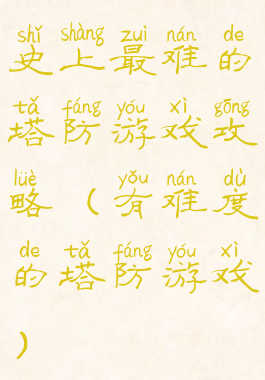 shǐ shàng zuì nán de
史上最难的
tǎ fáng yóu xì gōng
塔防游戏攻
lüè yǒu nán dù
略（有难度
de tǎ fáng yóu xì
的塔防游戏
）